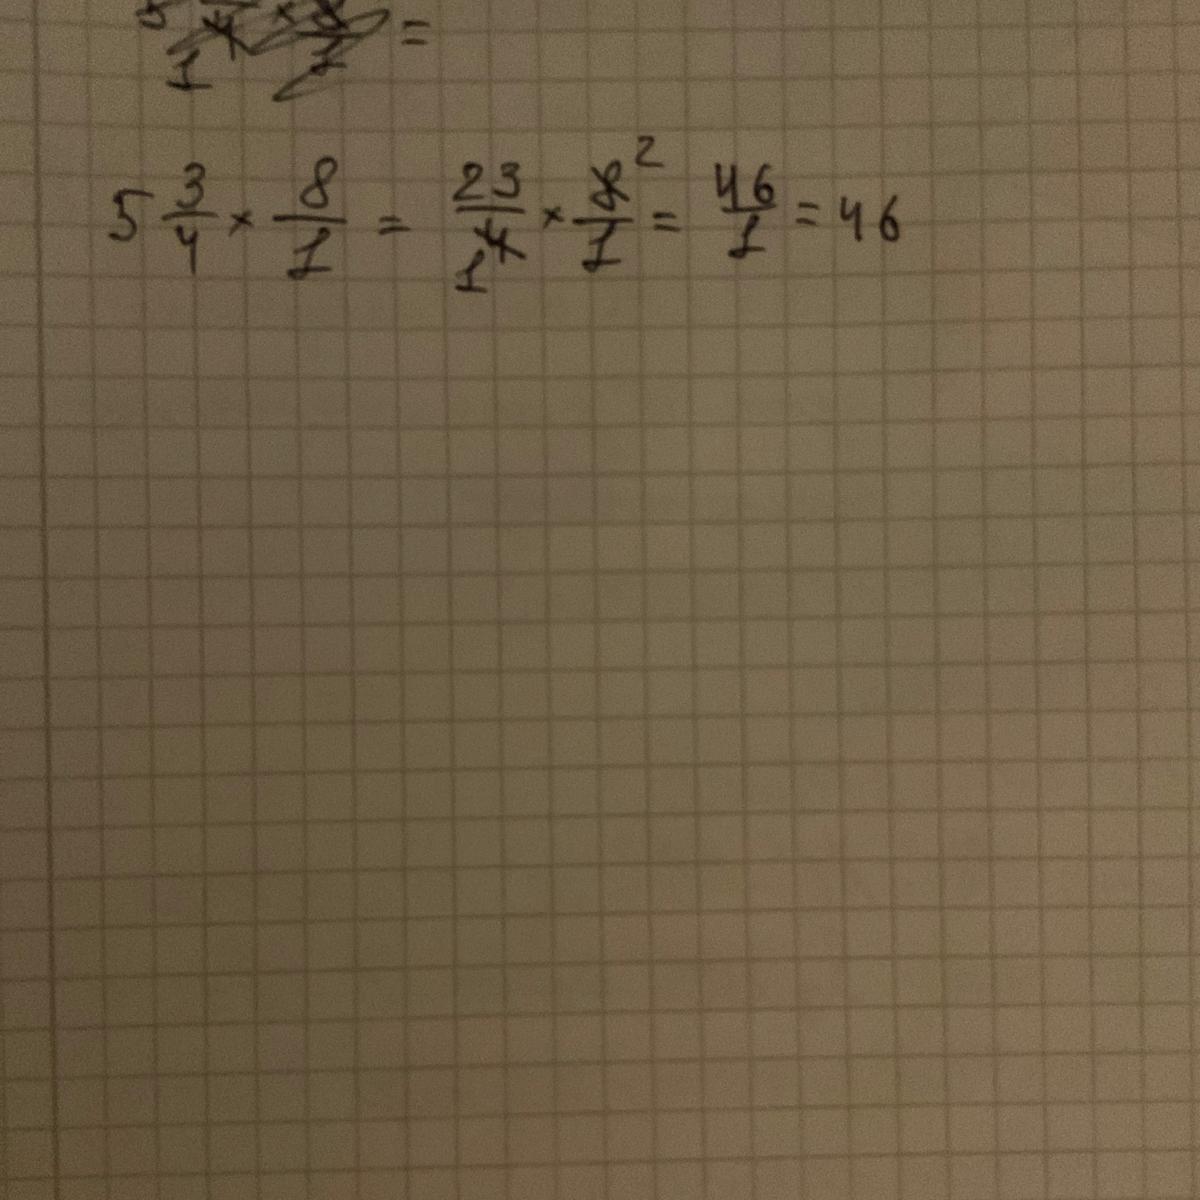 =
5 3/4 × 8/1 = 23/4 1 × 8/1 2 = 46/1 = 46